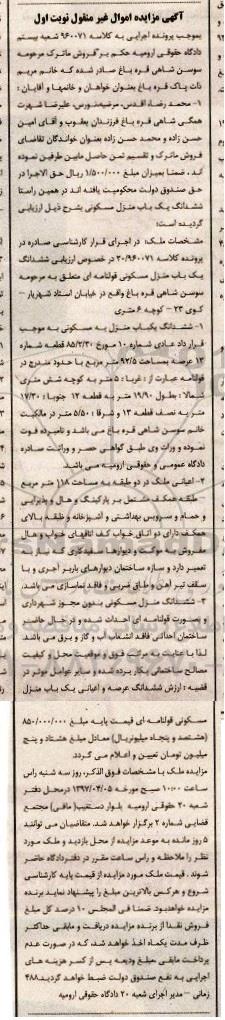 آگهی مزایده اموال غیر منقول نوبت اول
بموجب پرونده اجرایی به کلاسه ۹۶۰۰۷۱ شعبه بیستم
دادگاه حقوقی ارومیه حکم بر فروش ماترک مرحومه
سوسن شاهی قره باغ صادر شده که خانم مریم
ذات پاک قره باغ بعنوان خواهان و خانمها و آقایان :
۱- محمد رضا، اقدس، مرضیه، نورس، علیرضا شهرت
همگی شاهی قره باغ فرزندان یعقوب و آقای امین
حسن زاده و محمد حسن زاده بعنوان خواندگان تقاضای
فروش ماترک و تقسیم ثمن حاصل مابین طرفین نموده
اند . ضمنا بمیزان مبلغ ۱/۵۰۰/۰۰۰ ریال حق الاجرا در
حق صندوق دولت محکومیت یافته اند در همین راستا
ششدانگ یک باب منزل مسکونی بشرح ذیل ارزیابی
گردیده است:
مشخصات ملک: در اجرای قرار کارشناسی صادره در
پرونده کلاسه ۲۰/۹۶۰۰۷۱ در خصوص ارزیابی ششدانگ
یک باب منزل مسکونی قولنامه ای متعلق به مرحومه
سوسن شاهی قره باغ واقع در خیابان استاد شهریار –
کوی ۲۳ – کوچه ۶ متری
۱- ششدانگ یکباب منزل به مسکونی به موجب
قرار داد عادی شماره ۱۰ مورخ ۸۵/۲/۳۰ قطعه شماره
۱۳ عرصه بمساحت ۹۲/۵ متر مربع با حدود مندرج در
قولنامه عبارت از : غربا : ۵ متر به کوچه شش متری
شمالا : بطول ۱۹/۹۰ متر به قطعه ۱۲ جنوبا : ۱۷/۳۰
متر به نصف قطعه ۱۳ و شرقا : ۵/۵۰ متر در مالکیت
خانم سوسن شاهی قره باغ می باشد و نامبرده فوت
نموده و وراث وی طبق گواهی حصر و وراثت صادره
دادگاه عمومی و حقوقی ارومیه می باشد.
۲- اعیانی ملک در دو طبقه به مساحت ۱۱۸ متر مربع
– طبقه همکف مشتمل بر پارکینگ و هال و پذیرایی
و حمام و سرویس بهداشتی و آشپزخانه و طبقه بالای
همکف دارای دو اتاق خواب کف اتاقهای خواب و هال
مفروش به موکت و دیوارها سفیدکاری که نیاز به
تعمیر دارد و سازه ساختمان دیوارهای باربر آجری و با
سقف تیر آهن و طاق ضربی و فاقد نماسازی می باشد.
۳- ششدانگ منزل مسکونی بدون مجوز شهرداری
و بصورت قولنامه ای احداث شده و در حال حاضر
ساختمان احداثی فاقد انشعاب آب و گاز و برق می باشد
لذا با عنایت به مراتب فوق و موقعیت محل و کیفیت
مصالح ساختمانی بکار برده شده و سایر عوامل موثر در
قضیه : ارزش ششدانگ عرصه و اعیانی یک باب منزل
مسکونی قولنامه ای قیمت پایه مبلغ ۸۵۰/۰۰۰/۰۰۰
(هشتصد و پنجاه میلیون ریال) معادل مبلغ هشتاد و پنج
میلیون تومان تعیین و اعلام می گردد.
مزایده ملک با مشخصات فوق الذکر، روز سه شنبه راس
ساعت ۱۰:۰۰ صبح مورخه ۱۳۹۷/۰۴/۰۵ در محل دفتر
شعبه ۲۰ حقوقی ارومیه بلوار دستغیب( مافی) مجتمع
قضایی شماره ۲ برگزار خواهد شد. متقاضیان می توانند
۵ روز مانده به موعد مزایده از محل بازدید و ملک مورد
نظر را ملاحظه و راس ساعت مقرر در دفتر دادگاه حاضر
شوند . قیمت ملک مورد مزایده از قیمت پایه کارشناسی
شروع و هرکس بالاترین مبلغ را پیشنهاد نماید برنده
مزایده خواهد بود. ضمنا فی المجلس ۱۰ درصد کل مبلغ
فروش نقدا از برنده مزایده دریافت و مابقی حداکثر
ظرف مدت یکماه اخذ خواهد شد، که در صورت عدم
پرداخت مابقی مبلغ ودیعه پس از کسر هزینه های
اجرایی به نفع صندوق دولت ضبط خواهد گردید.۴۸۸
زمانی – مدیر اجرای شعبه ۲۰ دادگاه حقوقی ارومیه